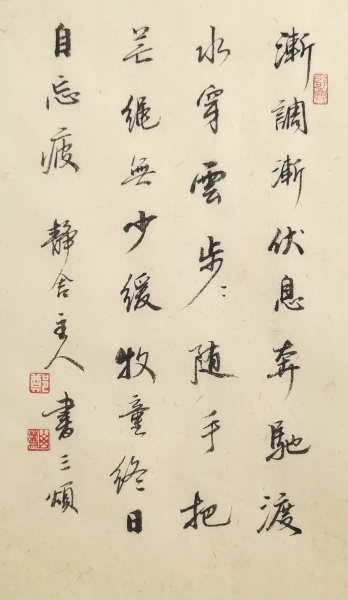 漸調漸伏息奔馳渡
水穿雲步〻随手把
芒繩無少緩牧童終日
自忘疲 靜舍主人書三頌